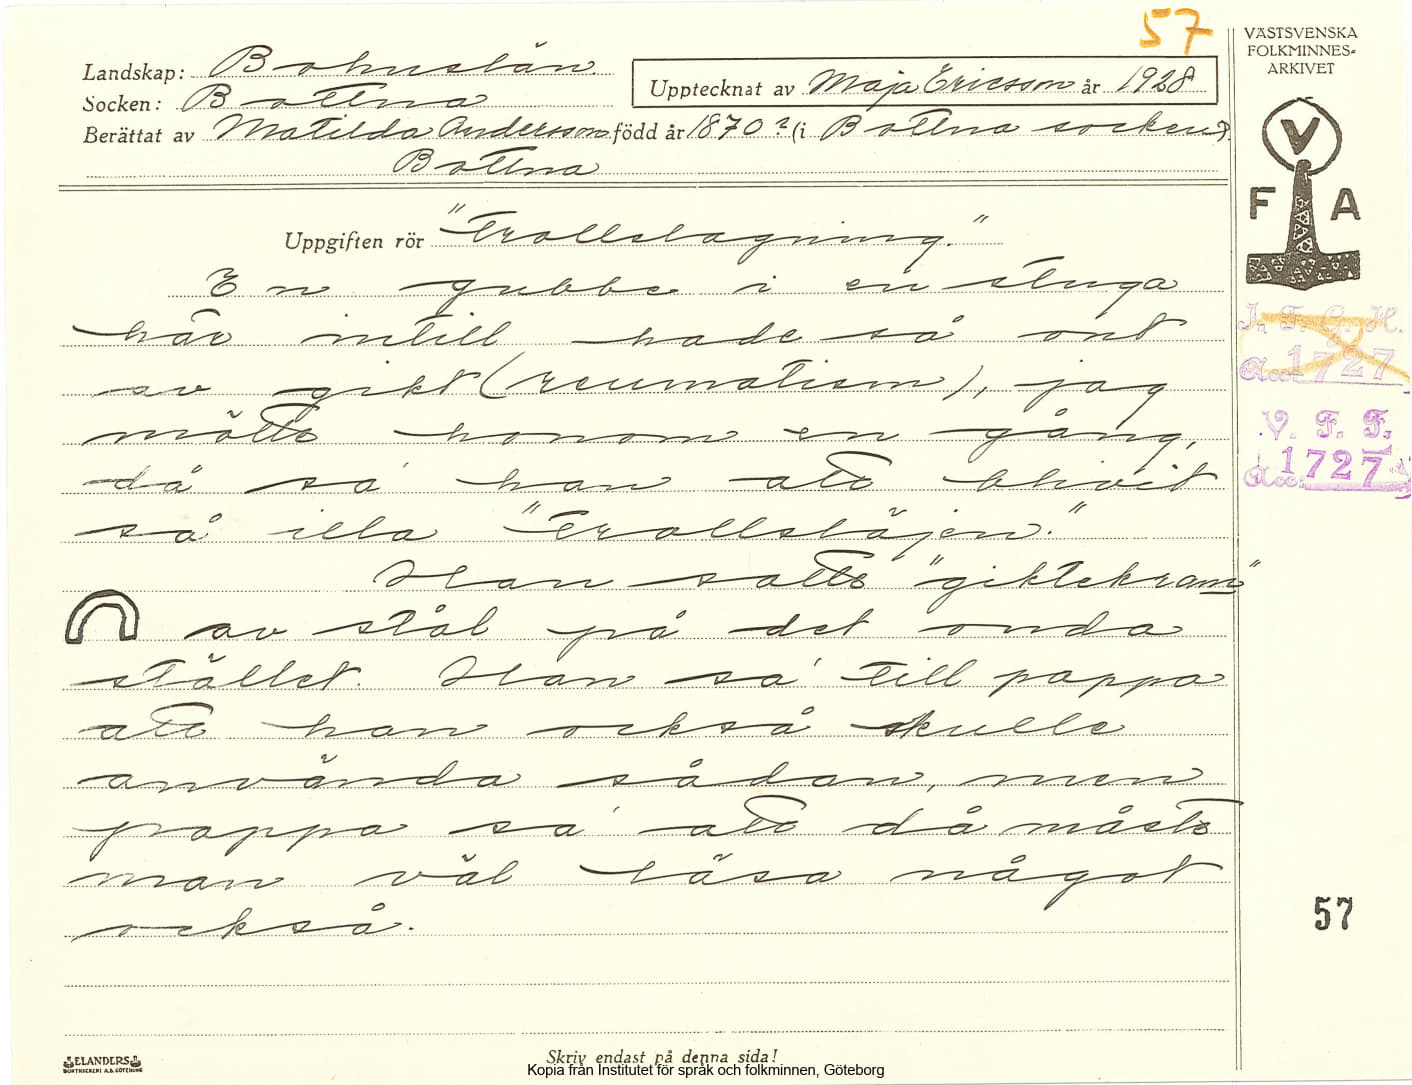 57
VÄSTSVENSKA
FOLKMINNES-
ARKIVET
Landskap: Bohuslän
Socken: Bottna
Upptecknat av Maja Ericsson år 1928
Berättat av Matilda Andersson född år 1870? (i Bottna socken?
Bottna
V
F A
Uppgiften rör "Trollslagning."
En gubbe i en stuga
här intill hade så ont
av gikt (reumatism), jag
mötte honom en gång,
då sa' han att blivit
så illa "Trollsläjen."
Han satte "giktekram"
av stål på det onda
stället. Han sa' till pappa
att han också skulle
använda sådan, men
pappa sa' att då måste
man väl läsa något
också.
I. F. G. H.
Acc. 1727
V. F. F.
Acc. 1727
57
ELANDERS
BOKTRYCKERI A.B. GÖTEBORG
Skriv endast på denna sida!
Kopia från Institutet för språk och folkminnen, Göteborg